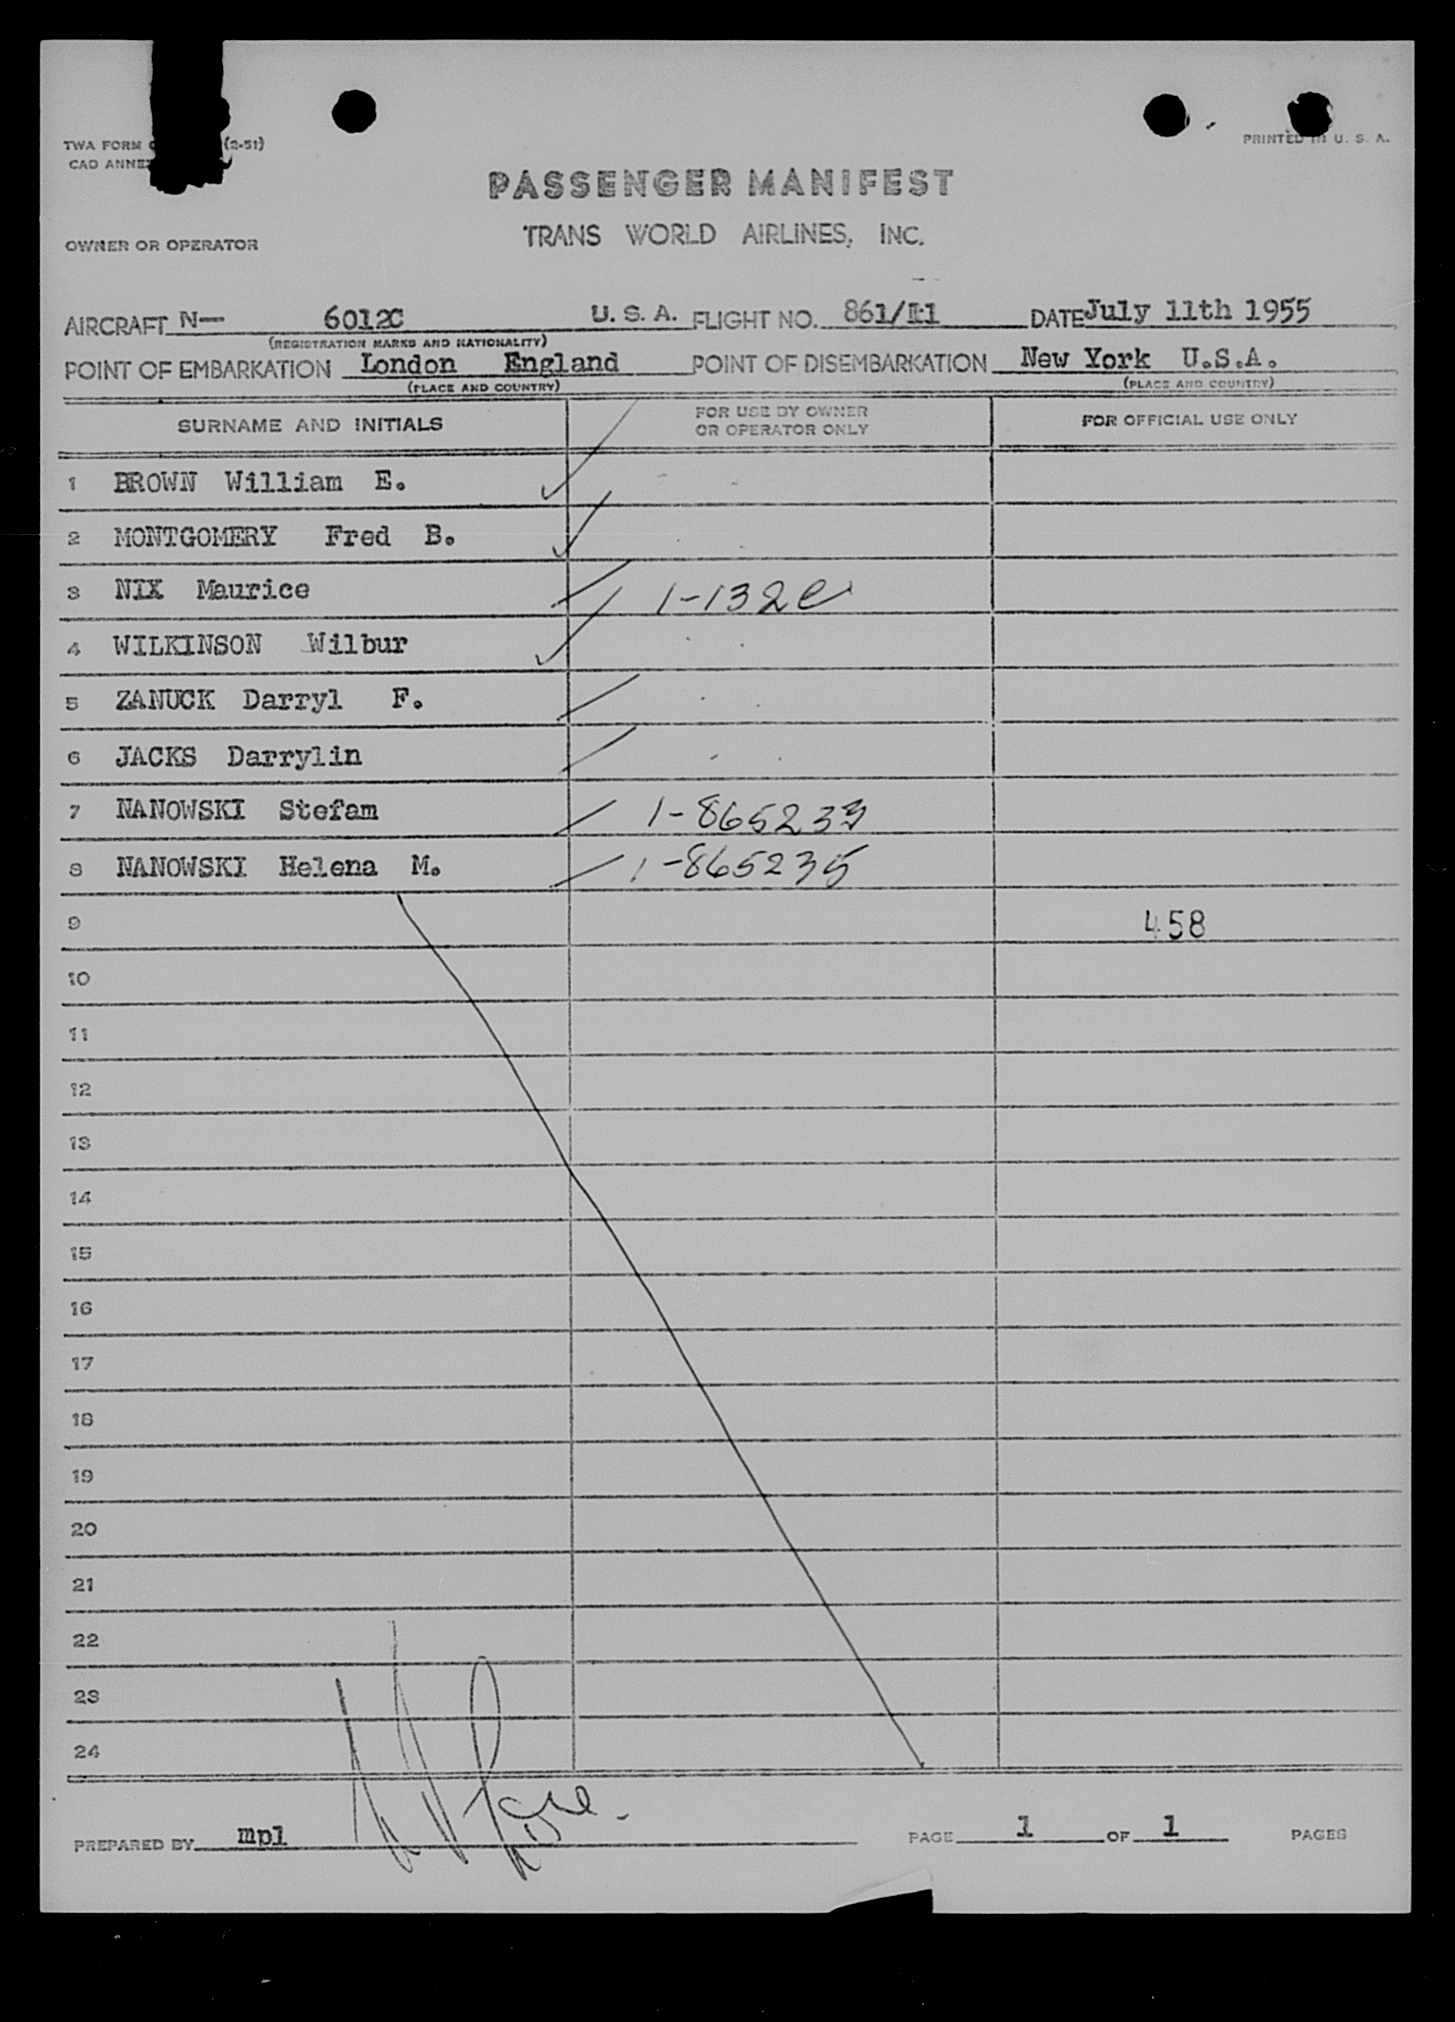 TWA FORM (2-51)
CAD ANNEX
PRINTED IN U. S. A.
PASSENGER MANIFEST
TRANS WORLD AIRLINES, INC.
OWNER OR OPERATOR
AIRCRAFT N— 6012C U. S. A. FLIGHT NO. 861/11 DATE July 11th 1955
(REGISTRATION MARKS AND NATIONALITY)
POINT OF EMBARKATION London England POINT OF DISEMBARKATION New York U.S.A.
(PLACE AND COUNTRY) (PLACE AND COUNTRY)
SURNAME AND INITIALS FOR USE BY OWNER OR OPERATOR ONLY FOR OFFICIAL USE ONLY
1 BROWN William E.
2 MONTGOMERY Fred B.
3 NIX Maurice 1-132e
4 WILKINSON Wilbur
5 ZANUCK Darryl F.
6 JACKS Darrylin
7 NANOWSKI Stefam 1-865233
8 NANOWSKI Helena M. 1-865235
9 458
10
11
12
13
14
15
16
17
18
19
20
21
22
23
24
PREPARED BY mpl PAGE 1 OF 1 PAGES